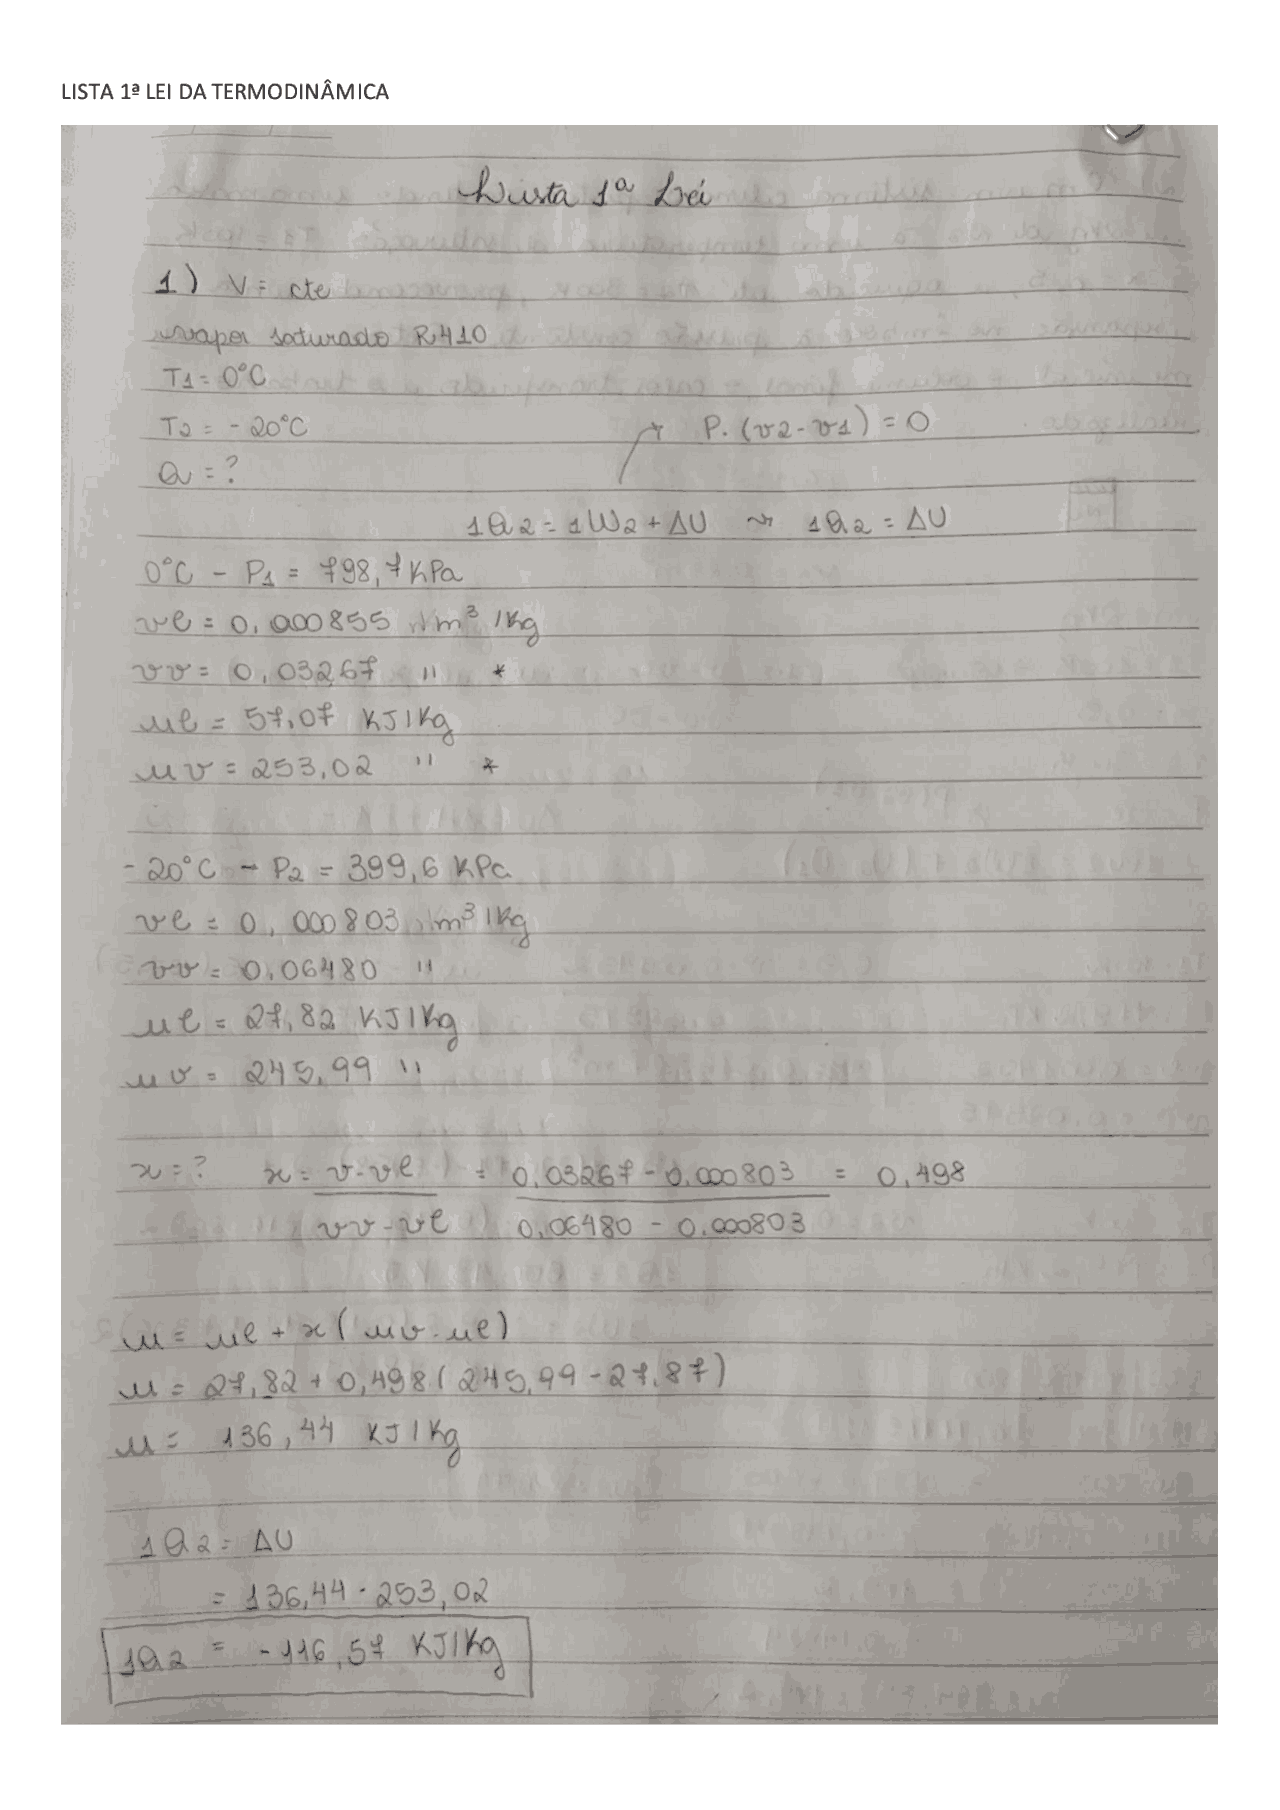 LISTA 1ª LEI DA TERMODINÂMICA
Lista 1ª Lei
1) V = cte
vapor saturado R410
T1 = 0°C
T2 = - 20°C
P. (v2 - v1) = 0
Q = ?
1Q2 = 1W2 + ΔU ⤳ 1Q2 = ΔU
0°C - P1 = 798,7 KPa
vl = 0,000855 m³/Kg
vv = 0,03267 " *
ul = 57,07 KJ/Kg
uv = 253,02 " *
- 20°C - P2 = 399,6 KPa
vl = 0,000803 m³/Kg
vv = 0,06480 "
ul = 27,82 KJ/Kg
uv = 245,99 "
x = ? x = v - vl / vv - vl = 0,03267 - 0,000803 / 0,06480 - 0,000803 = 0,498
u = ul + x (uv - ul)
u = 27,82 + 0,498 (245,99 - 27,87)
u = 136,44 KJ/Kg
1Q2 = ΔU
= 136,44 - 253,02
1Q2 = - 116,57 KJ/Kg